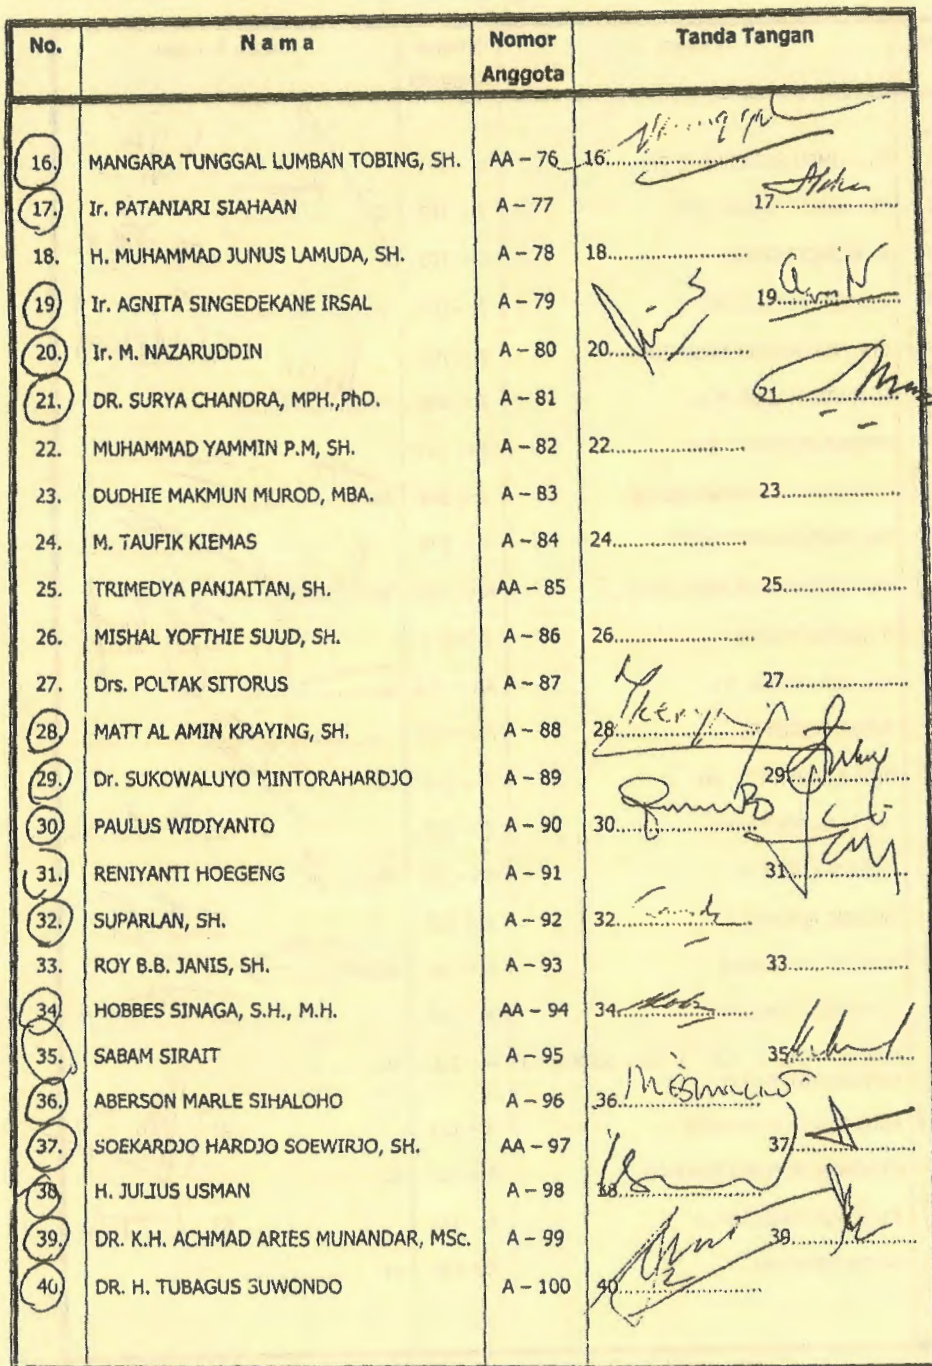 No. Nama Nomor Anggota Tanda Tangan
16. MANGARA TUNGGAL LUMBAN TOBING, SH. AA – 76 16....................
17. Ir. PATANIARI SIAHAAN A – 77 17....................
18. H. MUHAMMAD JUNUS LAMUDA, SH. A – 78 18....................
19 Ir. AGNITA SINGEDEKANE IRSAL A – 79 19....................
20. Ir. M. NAZARUDDIN A – 80 20....................
21. DR. SURYA CHANDRA, MPH.,PhD. A – 81 21....................
22. MUHAMMAD YAMMIN P.M, SH. A – 82 22....................
23. DUDHIE MAKMUN MUROD, MBA. A – 83 23....................
24. M. TAUFIK KIEMAS A – 84 24....................
25. TRIMEDYA PANJAITAN, SH. AA – 85 25....................
26. MISHAL YOFTHIE SUUD, SH. A – 86 26....................
27. Drs. POLTAK SITORUS A – 87 27....................
28. MATT AL AMIN KRAYING, SH. A – 88 28....................
29. Dr. SUKOWALUYO MINTORAHARDJO A – 89 29....................
30 PAULUS WIDIYANTO A – 90 30....................
31. RENIYANTI HOEGENG A – 91 31....................
32. SUPARLAN, SH. A – 92 32....................
33. ROY B.B. JANIS, SH. A – 93 33....................
34. HOBBES SINAGA, S.H., M.H. AA – 94 34....................
35. SABAM SIRAIT A – 95 35....................
36. ABERSON MARLE SIHALOHO A – 96 36....................
37. SOEKARDJO HARDJO SOEWIRJO, SH. AA – 97 37....................
38. H. JULIUS USMAN A – 98 38....................
39. DR. K.H. ACHMAD ARIES MUNANDAR, MSc. A – 99 39....................
40. DR. H. TUBAGUS SUWONDO A – 100 40....................